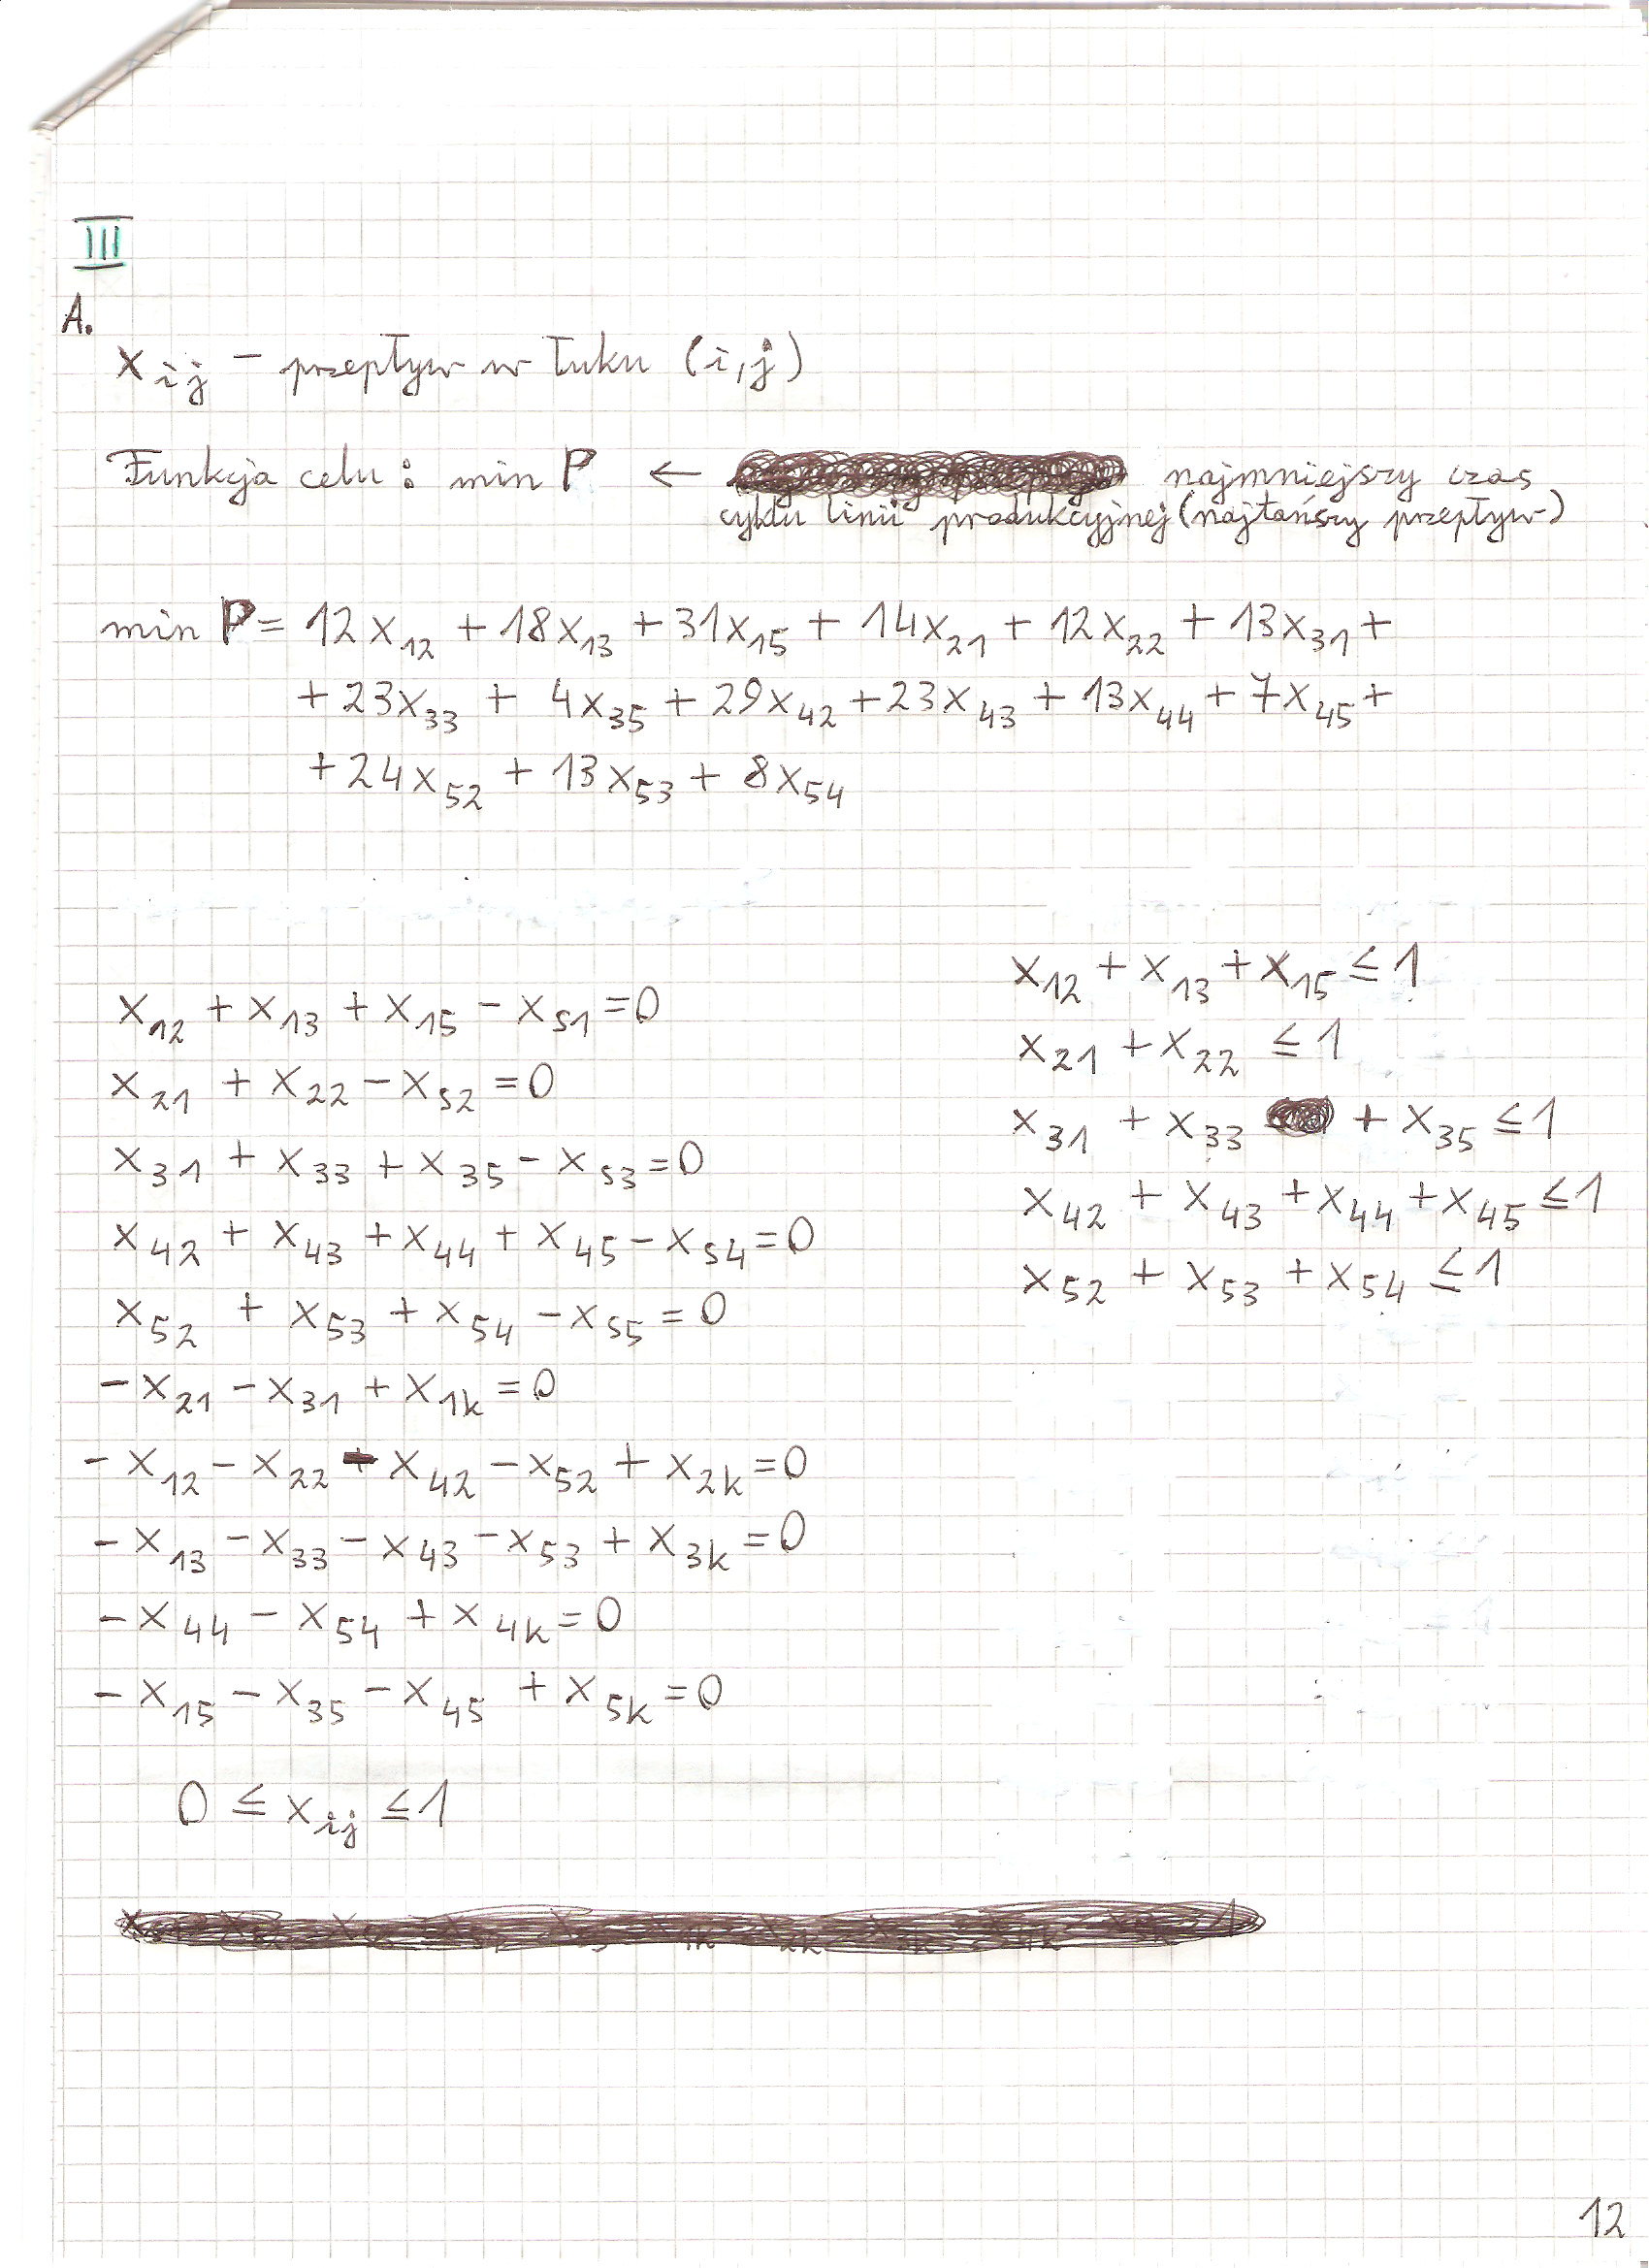 III
A.
x_ij – przepływ w łuku (i,j)
Funkcja celu: min P ← najmniejszy czas
cyklu linii produkcyjnej (najtańszy przepływ)
min P = 12x_12 + 18x_13 + 31x_15 + 14x_21 + 12x_22 + 13x_31 +
+ 23x_33 + 4x_35 + 29x_42 + 23x_43 + 13x_44 + 7x_45 +
+ 24x_52 + 13x_53 + 8x_54
x_12 + x_13 + x_15 – x_S1 = 0
x_21 + x_22 – x_S2 = 0
x_31 + x_33 + x_35 – x_S3 = 0
x_42 + x_43 + x_44 + x_45 – x_S4 = 0
x_52 + x_53 + x_54 – x_S5 = 0
– x_21 – x_31 + x_1k = 0
– x_12 – x_22 – x_42 – x_52 + x_2k = 0
– x_13 – x_33 – x_43 – x_53 + x_3k = 0
– x_44 – x_54 + x_4k = 0
– x_15 – x_35 – x_45 + x_5k = 0
0 ≤ x_ij ≤ 1
x_12 + x_13 + x_15 ≤ 1
x_21 + x_22 ≤ 1
x_31 + x_33 + x_35 ≤ 1
x_42 + x_43 + x_44 + x_45 ≤ 1
x_52 + x_53 + x_54 ≤ 1
12